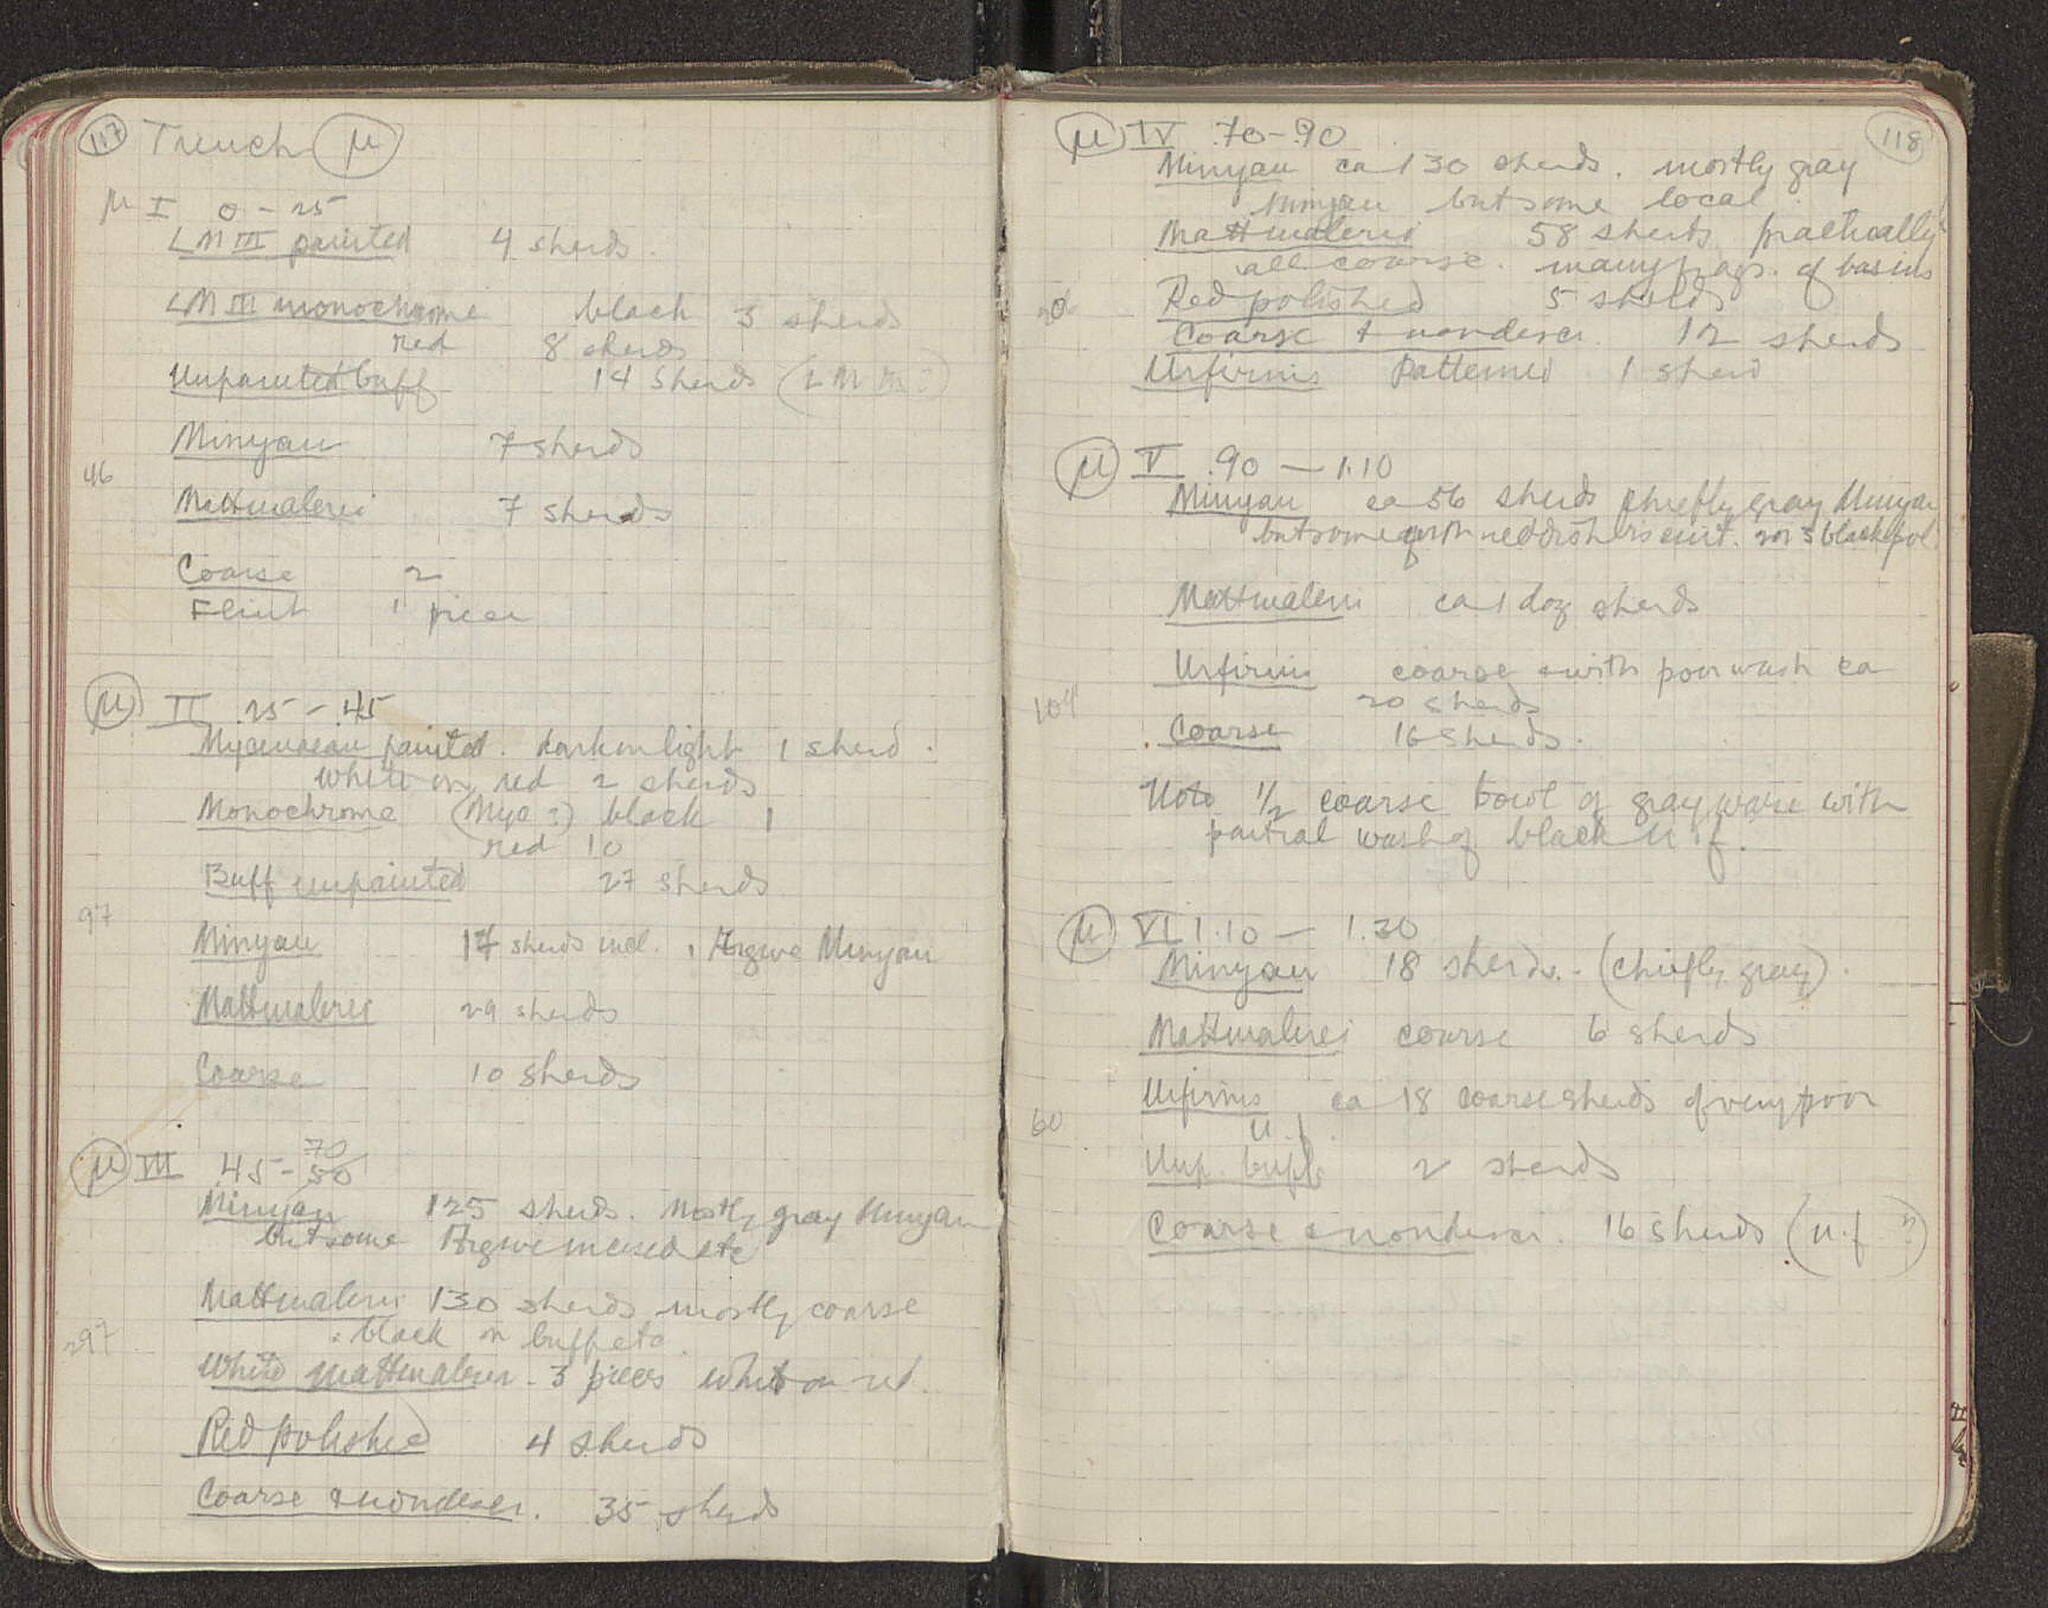 117 Trench μ
μ I 0 - 25
LM III painted 4 sherds.
LM III monochrome black 3 sherds
red 8 sherds
Unpainted buff 14 sherds (LM III?)
Minyan 7 sherds
46
Mattmalerei 7 sherds
Coarse 2
Flint 1 piece
μ II .25 - .45
Mycenaean painted. dark on light 1 sherd.
white on red 2 sherds
Monochrome (Myc?) black 1
red 10
Buff unpainted 27 sherds
97
Minyan 17 sherds incl. 1 Argive Minyan
Mattmalerei 29 sherds
Coarse 10 sherds
70
μ III .45 - 50
Minyan 125 sherds. Mostly gray Minyan
but some Argive incised etc
Mattmalerei 130 sherds mostly coarse
black on buff etc.
297
White mattmalerei - 3 pieces white on red.
Red polished 4 sherds
Coarse & nondescr. 35 sherds
118
μ IV .70 - .90
Minyan ca 130 sherds. mostly gray
Minyan but some local
Mattmalerei 58 sherds practically
all coarse. many frags. of basins
Red polished 5 sherds
Coarse & nondescr. 12 sherds
Urfirnis Patterned 1 sherd
μ V .90 — 1.10
Minyan ca 56 sherds chiefly gray Minyan
but some with reddish biscuit. 2 or 3 black pol.
Mattmalerei ca 1 doz sherds
Urfirnis coarse & with poor wash ca
20 sherds
104
Coarse 16 sherds.
Note 1/2 coarse bowl of gray ware with
partial wash of black u.f.
μ VI 1.10 — 1.30
Minyan 18 sherds. - (chiefly gray).
Mattmalerei coarse 6 sherds
Urfirnis ca 18 coarse sherds of very poor
u.f.
60
Unp. buff 2 sherds
Coarse & nondescr. 16 sherds (u.f.?)